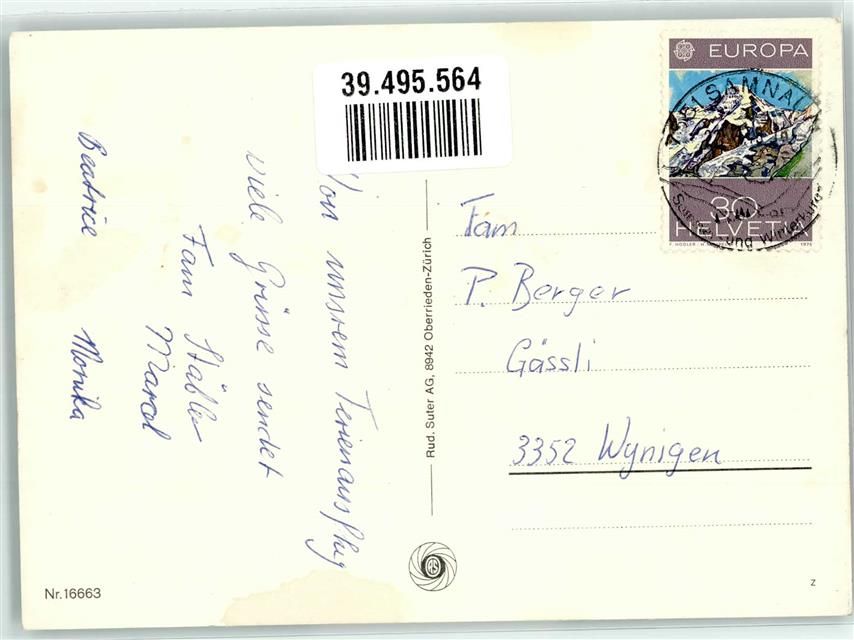 39.495.564
Von unsrem Ferienausflug
viele Grüsse sendet
Fam Stäbler
Marcel
Beatrice Monika
Rud. Suter AG, 8942 Oberrieden-Zürich
Nr. 16663
EUROPA
30
HELVETIA
SAMNAU
und Winterkur
Fam
P. Berger
Gässli
3352 Wynigen
z